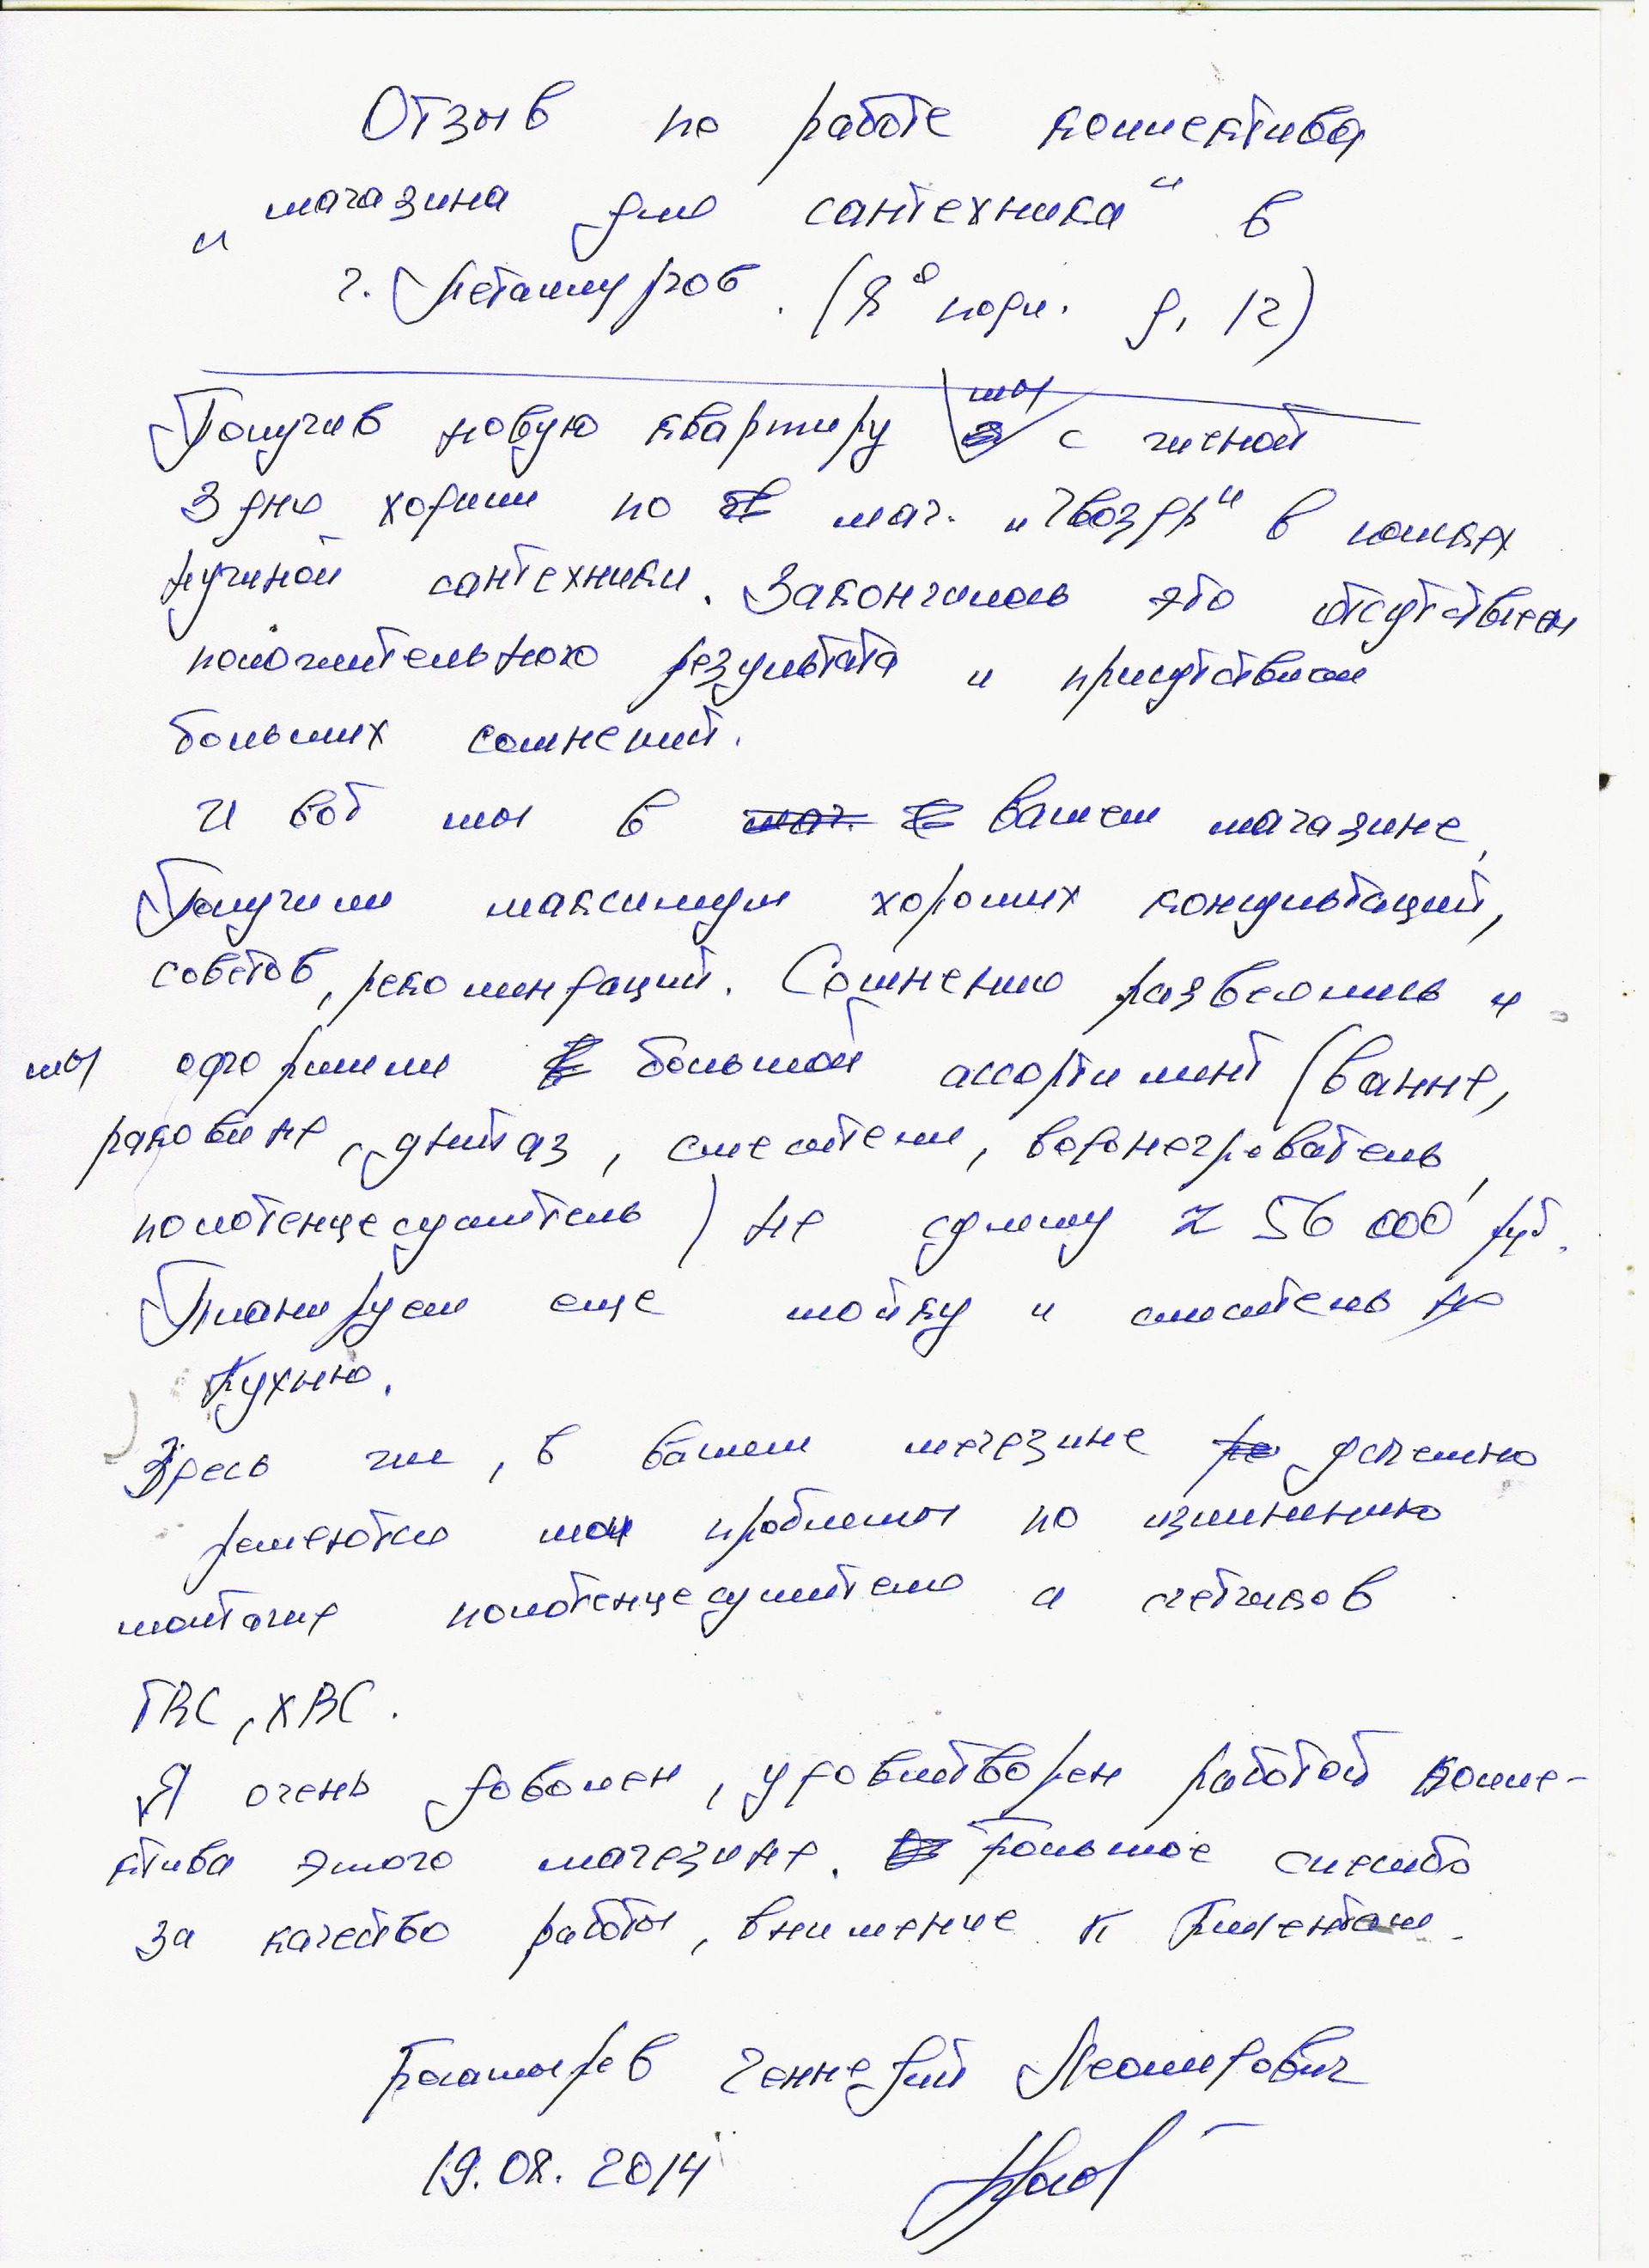 Отзыв по работе коллектива
„магазина для сантехника" в
г. Металлургов. (8й подъ. д. 12)
Получив новую квартиру мы с женой
3 дня ходили по маг. „Гвоздь" в поисках
нужной сантехники. Закончилось это отсутствием
положительного результата и присутствием
больших сомнений.
И вот мы в вашем магазине,
Получили максимум хороших консультаций,
советов, рекомендаций. Сомнения развеялись и
мы оформили большой ассортимент (ванна,
раковина, унитаз, смесители, водонагреватель,
полотенцесушитель) на сумму ≈ 56 000 руб.
Планируем еще мойку и смеситель на
кухню.
Здесь же, в вашем магазине успешно
решаются мои проблемы по изменению
монтажа полотенцесушителя и счетчиков
ГВС, ХВС.
Я очень доволен, удовлетворен работой колле-
ктива этого магазина. Большое спасибо
за качество работы, внимание к клиентам.
Геннадий Леонидович
19.08.2014